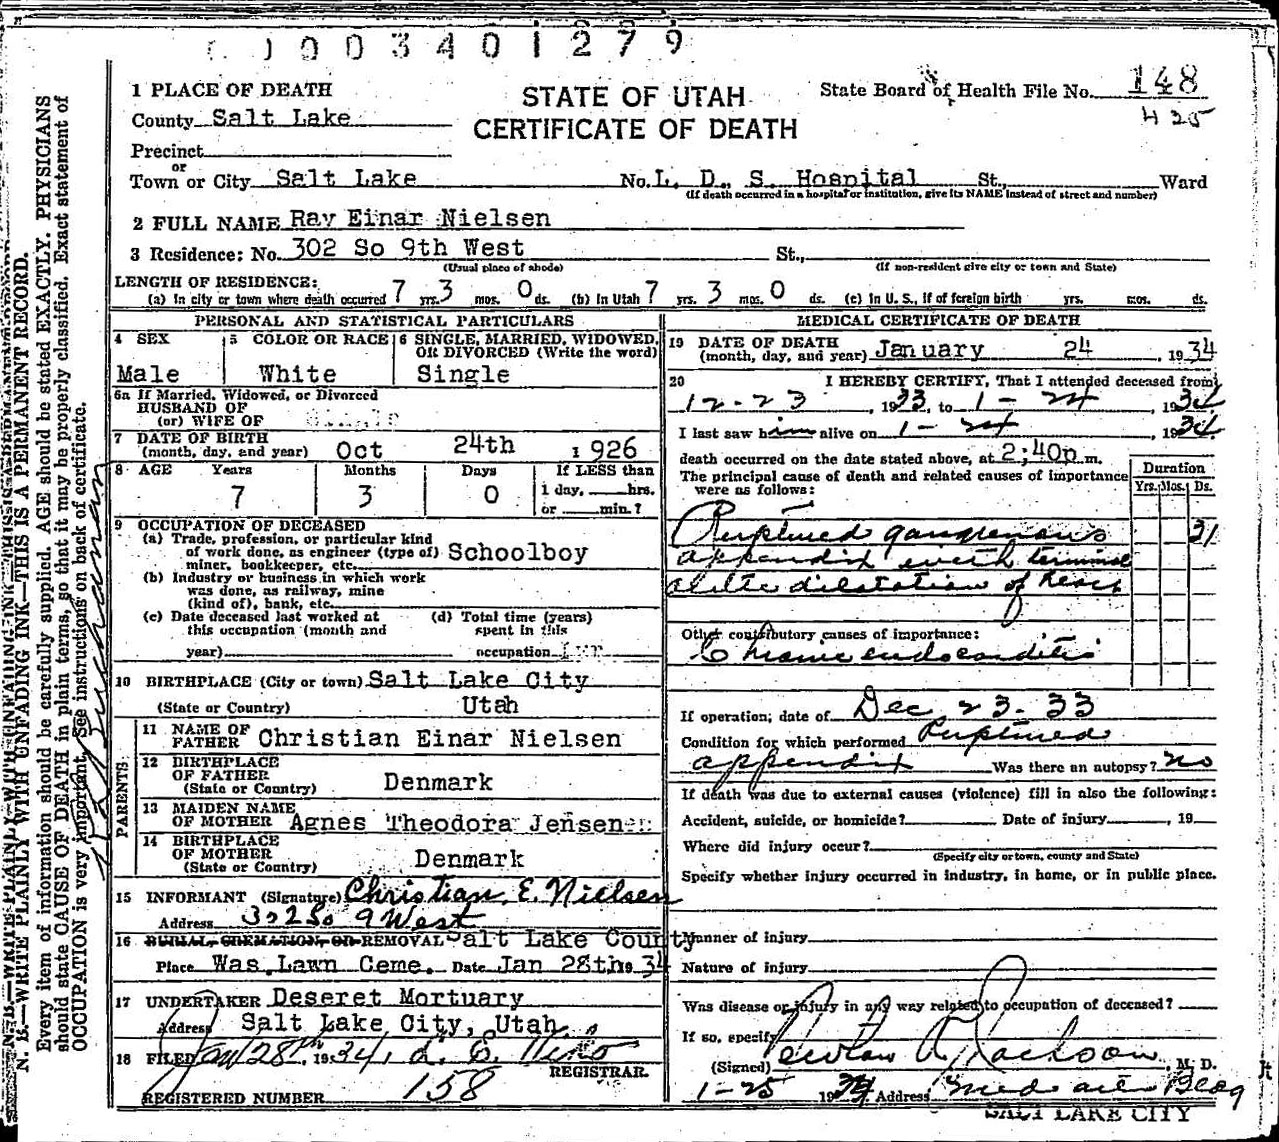 003401279
1 PLACE OF DEATH
County Salt Lake
Precinct
or
Town or City Salt Lake
STATE OF UTAH
CERTIFICATE OF DEATH
State Board of Health File No. 148
425
No. L. D. S. Hospital St., Ward
(If death occurred in a hospital or institution, give its NAME instead of street and number)
2 FULL NAME Ray Einar Nielsen
3 Residence: No. 302 So 9th West St.,
(Usual place of abode) (If non-resident give city or town and State)
LENGTH OF RESIDENCE:
(a) In city or town where death occurred 7 yrs. 3 mos. 0 ds. (b) In Utah 7 yrs. 3 mos. 0 ds. (c) In U. S., if of foreign birth yrs. mos. ds.
PERSONAL AND STATISTICAL PARTICULARS
4 SEX 5 COLOR OR RACE 6 SINGLE, MARRIED, WIDOWED,
OR DIVORCED (Write the word)
Male White Single
6a If Married, Widowed, or Divorced
HUSBAND OF
(or) WIFE OF
7 DATE OF BIRTH
(month, day, and year) Oct 24th 1926
8 AGE Years Months Days If LESS than
7 3 0 1 day, hrs.
or min.?
9 OCCUPATION OF DECEASED
(a) Trade, profession, or particular kind
of work done, as engineer (type of) Schoolboy
miner, bookkeeper, etc.
(b) Industry or business in which work
was done, as railway, mine
(kind of), bank, etc.
(c) Date deceased last worked at (d) Total time (years)
this occupation (month and spent in this
year) occupation
10 BIRTHPLACE (City or town) Salt Lake City
(State or Country) Utah
PARENTS
11 NAME OF
FATHER Christian Einar Nielsen
12 BIRTHPLACE
OF FATHER
(State or Country) Denmark
13 MAIDEN NAME
OF MOTHER Agnes Theodora Jensen
14 BIRTHPLACE
OF MOTHER
(State or Country) Denmark
15 INFORMANT (Signature) Christian E. Nielsen
Address 302 So 9 West
16 BURIAL, CREMATION, OR REMOVAL Salt Lake County
Place Was. Lawn Ceme. Date Jan 28th 1934
17 UNDERTAKER Deseret Mortuary
Address Salt Lake City, Utah
18 FILED Jan 28th 1934,
REGISTRAR.
REGISTERED NUMBER 158
MEDICAL CERTIFICATE OF DEATH
19 DATE OF DEATH
(month, day, and year) January 24, 1934
20 I HEREBY CERTIFY, That I attended deceased from
12-23, 1933, to 1-24, 1934
I last saw him alive on 1-24, 1934
death occurred on the date stated above, at 2;40p m.
The principal cause of death and related causes of importance
were as follows:
Duration
Yrs. Mos. Ds.
Ruptured gangrenous 31
appendix with terminal
acute dilatation of heart
Other contributory causes of importance:
Chronic endocarditis
If operation, date of Dec 23-33
Condition for which performed Ruptured
appendix Was there an autopsy? no
If death was due to external causes (violence) fill in also the following:
Accident, suicide, or homicide? Date of injury , 19
Where did injury occur?
(Specify city or town, county and State)
Specify whether injury occurred in industry, in home, or in public place.
Manner of injury
Nature of injury
Was disease or injury in any way related to occupation of deceased?
If so, specify
(Signed) M. D.
1-25 1934 Address Med arts Bldg
SALT LAKE CITY
N. B.—WRITE PLAINLY WITH UNFADING INK—THIS IS A PERMANENT RECORD.
Every item of information should be carefully supplied. AGE should be stated EXACTLY. PHYSICIANS
should state CAUSE OF DEATH in plain terms, so that it may be properly classified. Exact statement of
OCCUPATION is very important. See instructions on back of certificate.